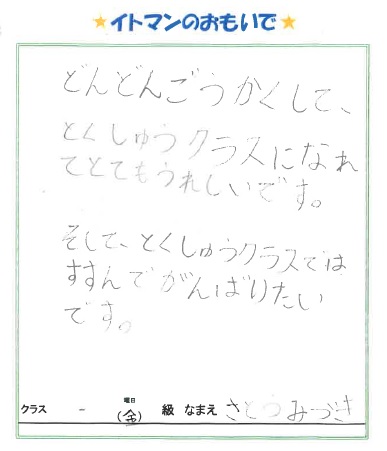 ★イトマンのおもいで★
どんどんごうかくして、
とくしゅうクラスになれ
てとてもうれしいです。
そして、とくしゅうクラスでは
すすんでがんばりたい
です。
クラス - 曜日(金) 級 なまえ さとうみづき